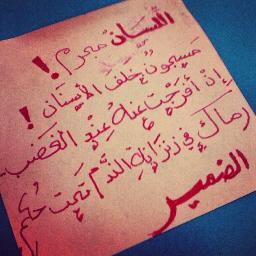 اللسان مجرم !
مسجون خلف الأسنان !
إن أفرجت عنه عند الغضب
رماك في زنزانة الندم تحت حكم
الضمير